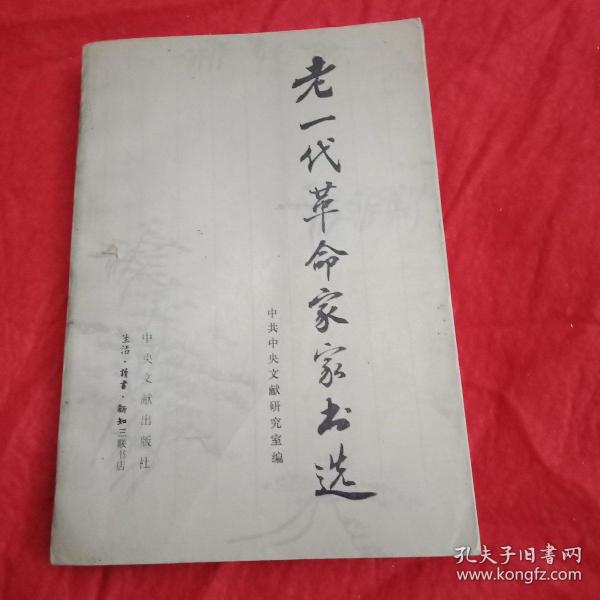 老一代革命家家书选
中共中央文献研究室编
中央文献出版社
生活·讀書·新知三联书店
孔夫子旧书网
www.kongfz.com